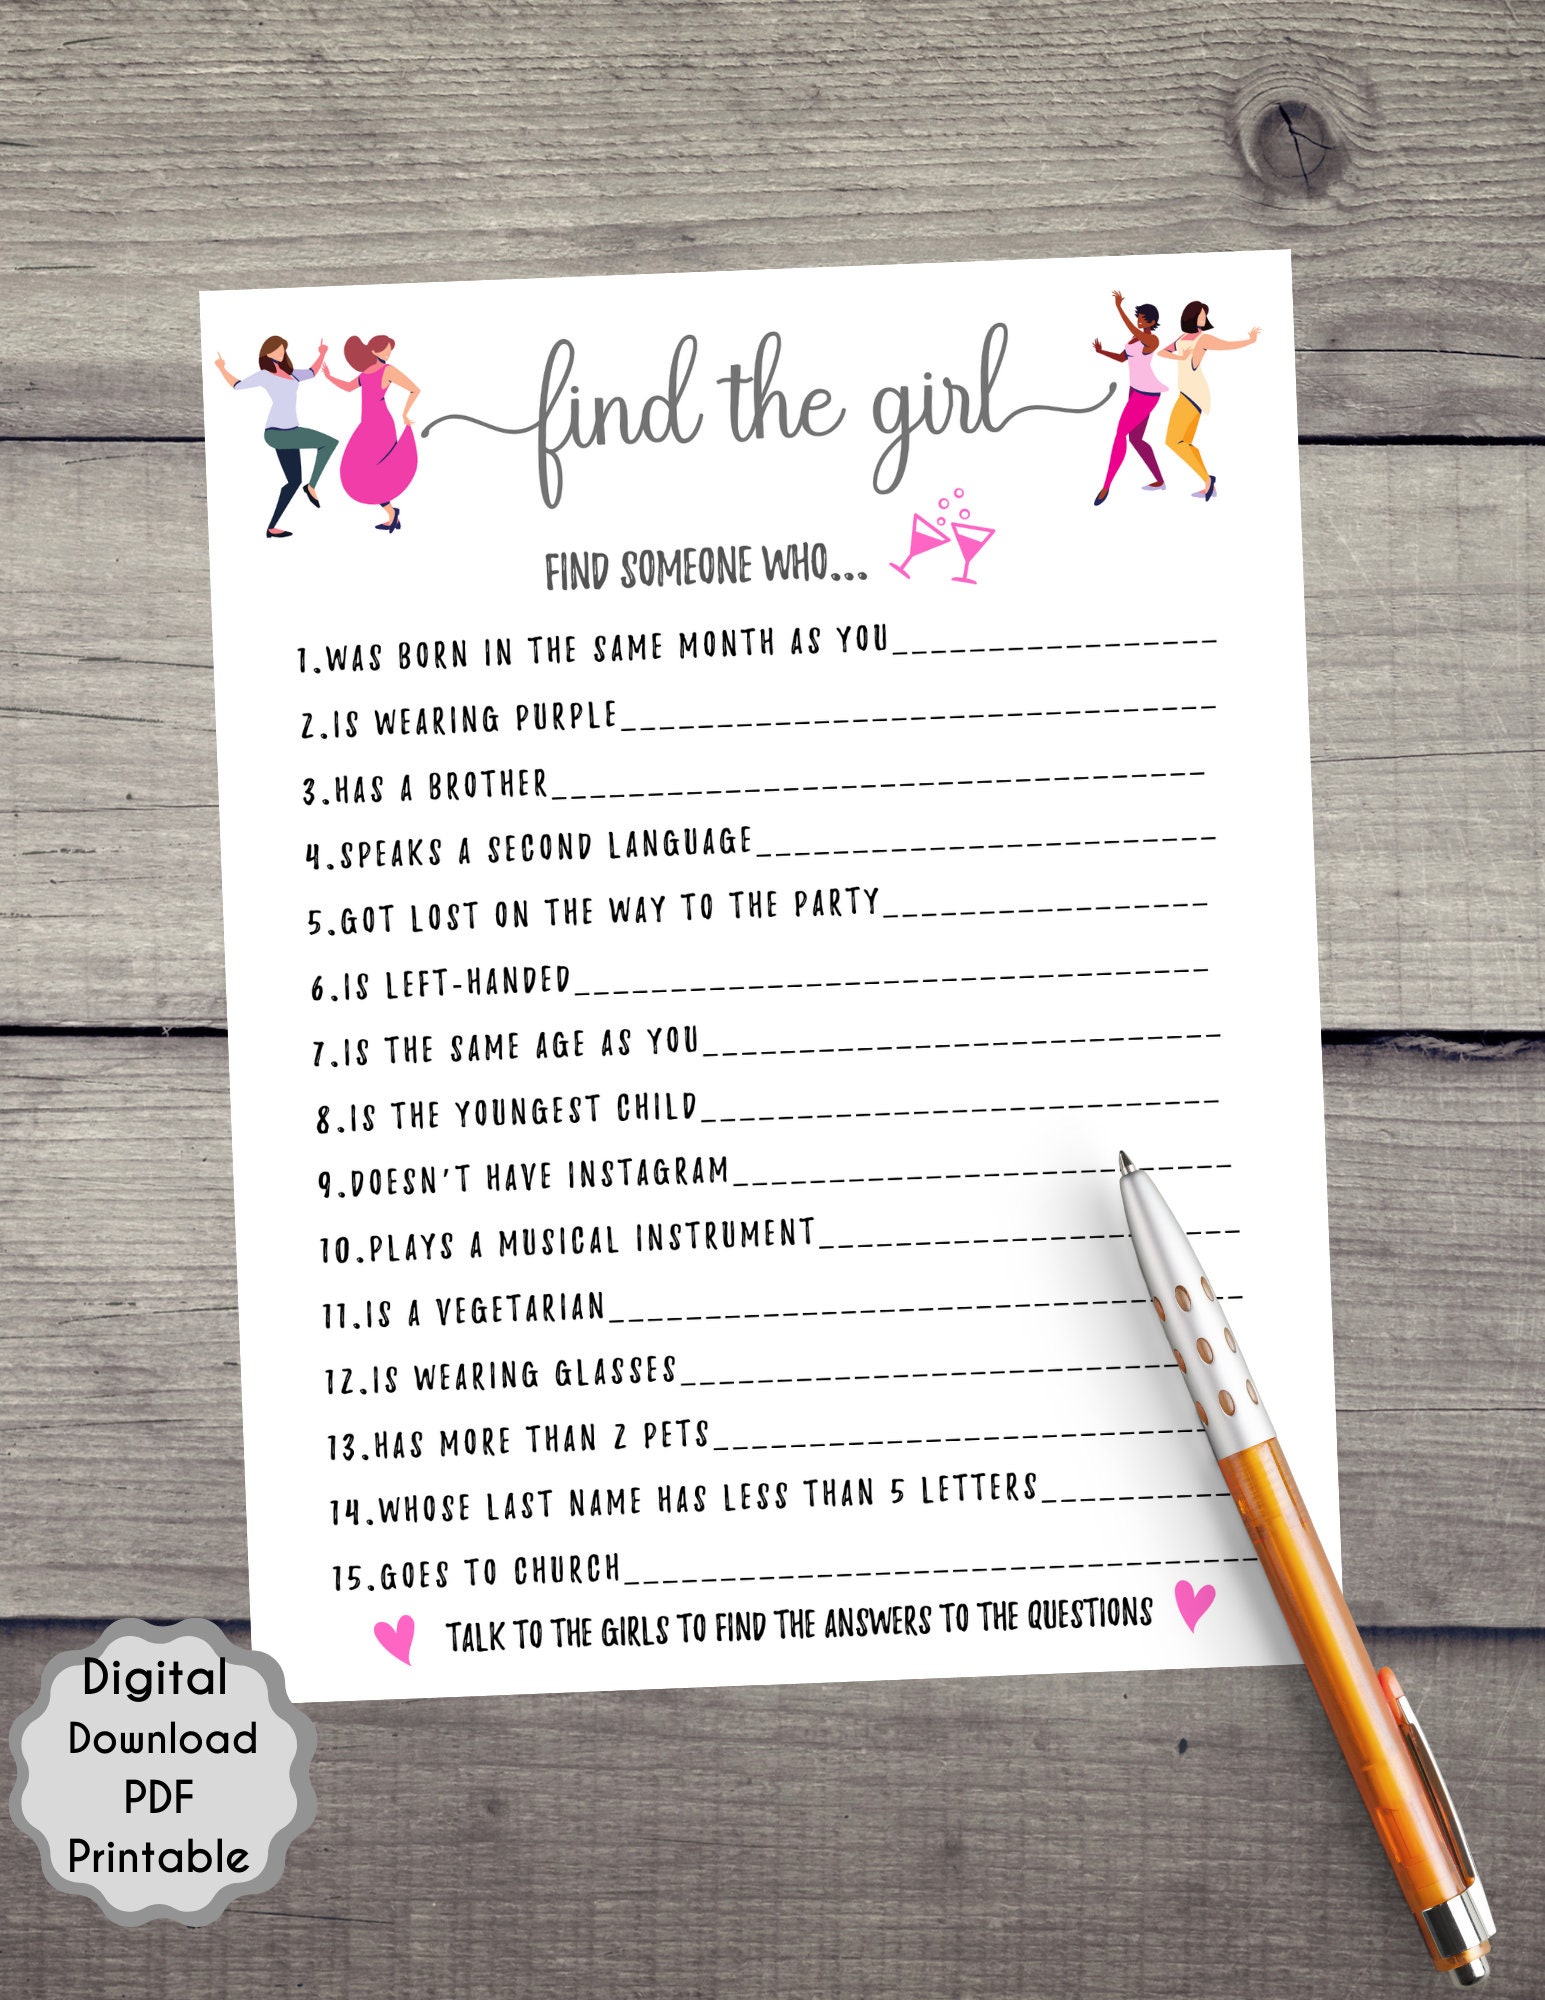 find the girl
FIND SOMEONE WHO...
1.WAS BORN IN THE SAME MONTH AS YOU_________________
2.IS WEARING PURPLE_______________________________
3.HAS A BROTHER__________________________________
4.SPEAKS A SECOND LANGUAGE________________________
5.GOT LOST ON THE WAY TO THE PARTY_________________
6.IS LEFT-HANDED_________________________________
7.IS THE SAME AGE AS YOU___________________________
8.IS THE YOUNGEST CHILD___________________________
9.DOESN'T HAVE INSTAGRAM__________________________
10.PLAYS A MUSICAL INSTRUMENT______________________
11.IS A VEGETARIAN_________________________________
12.IS WEARING GLASSES__________________________
13.HAS MORE THAN 2 PETS__________________________
14.WHOSE LAST NAME HAS LESS THAN 5 LETTERS__________
15.GOES TO CHURCH_________________________________
TALK TO THE GIRLS TO FIND THE ANSWERS TO THE QUESTIONS
Digital
Download
PDF
Printable